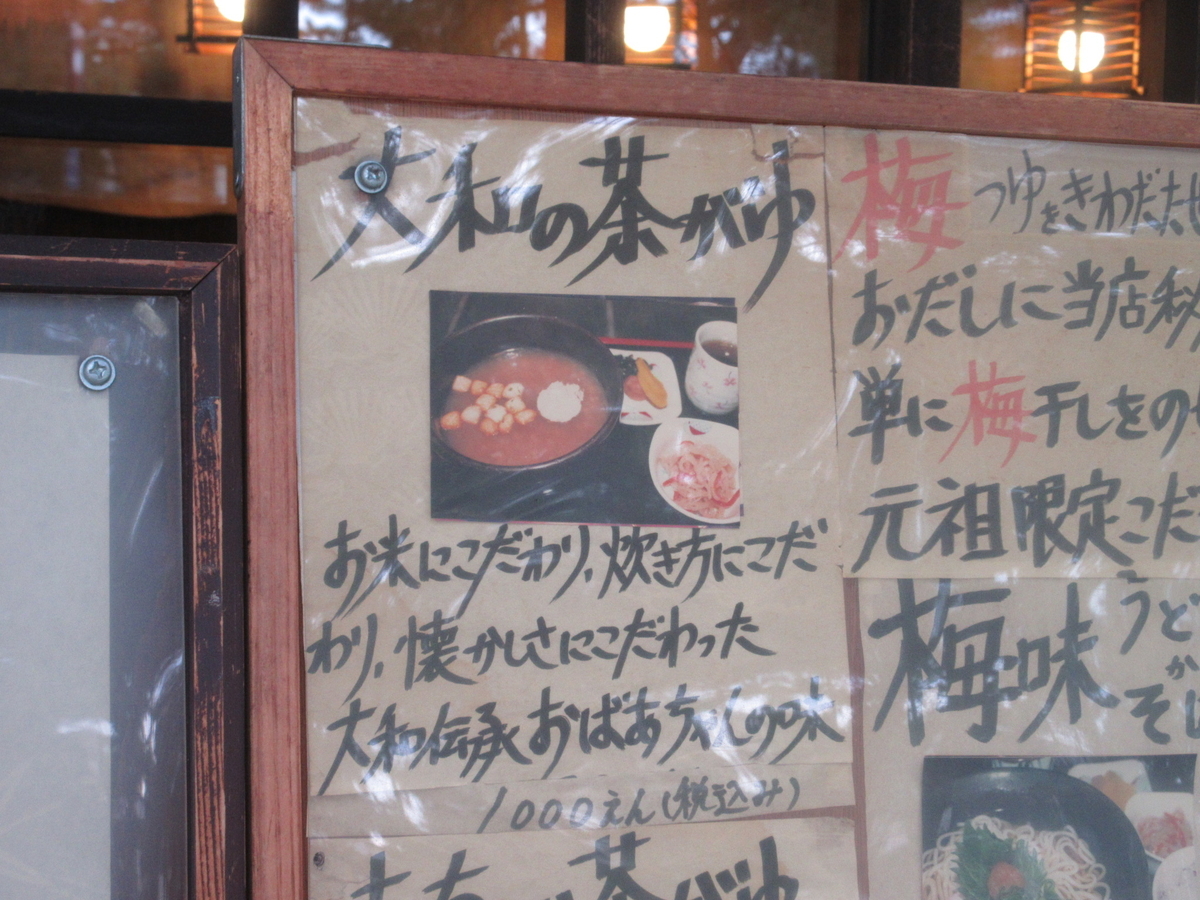 大和の茶がゆ
お米にこだわり、炊き方にこだ
わり、懐かしさにこだわった
大和伝承おばあちゃんの味
1000えん(税込み)
茶がゆ
梅つゆをきわだたせ
おだしに当店秘
単に梅干しをの
元祖限定こだ
梅味
うど
そ